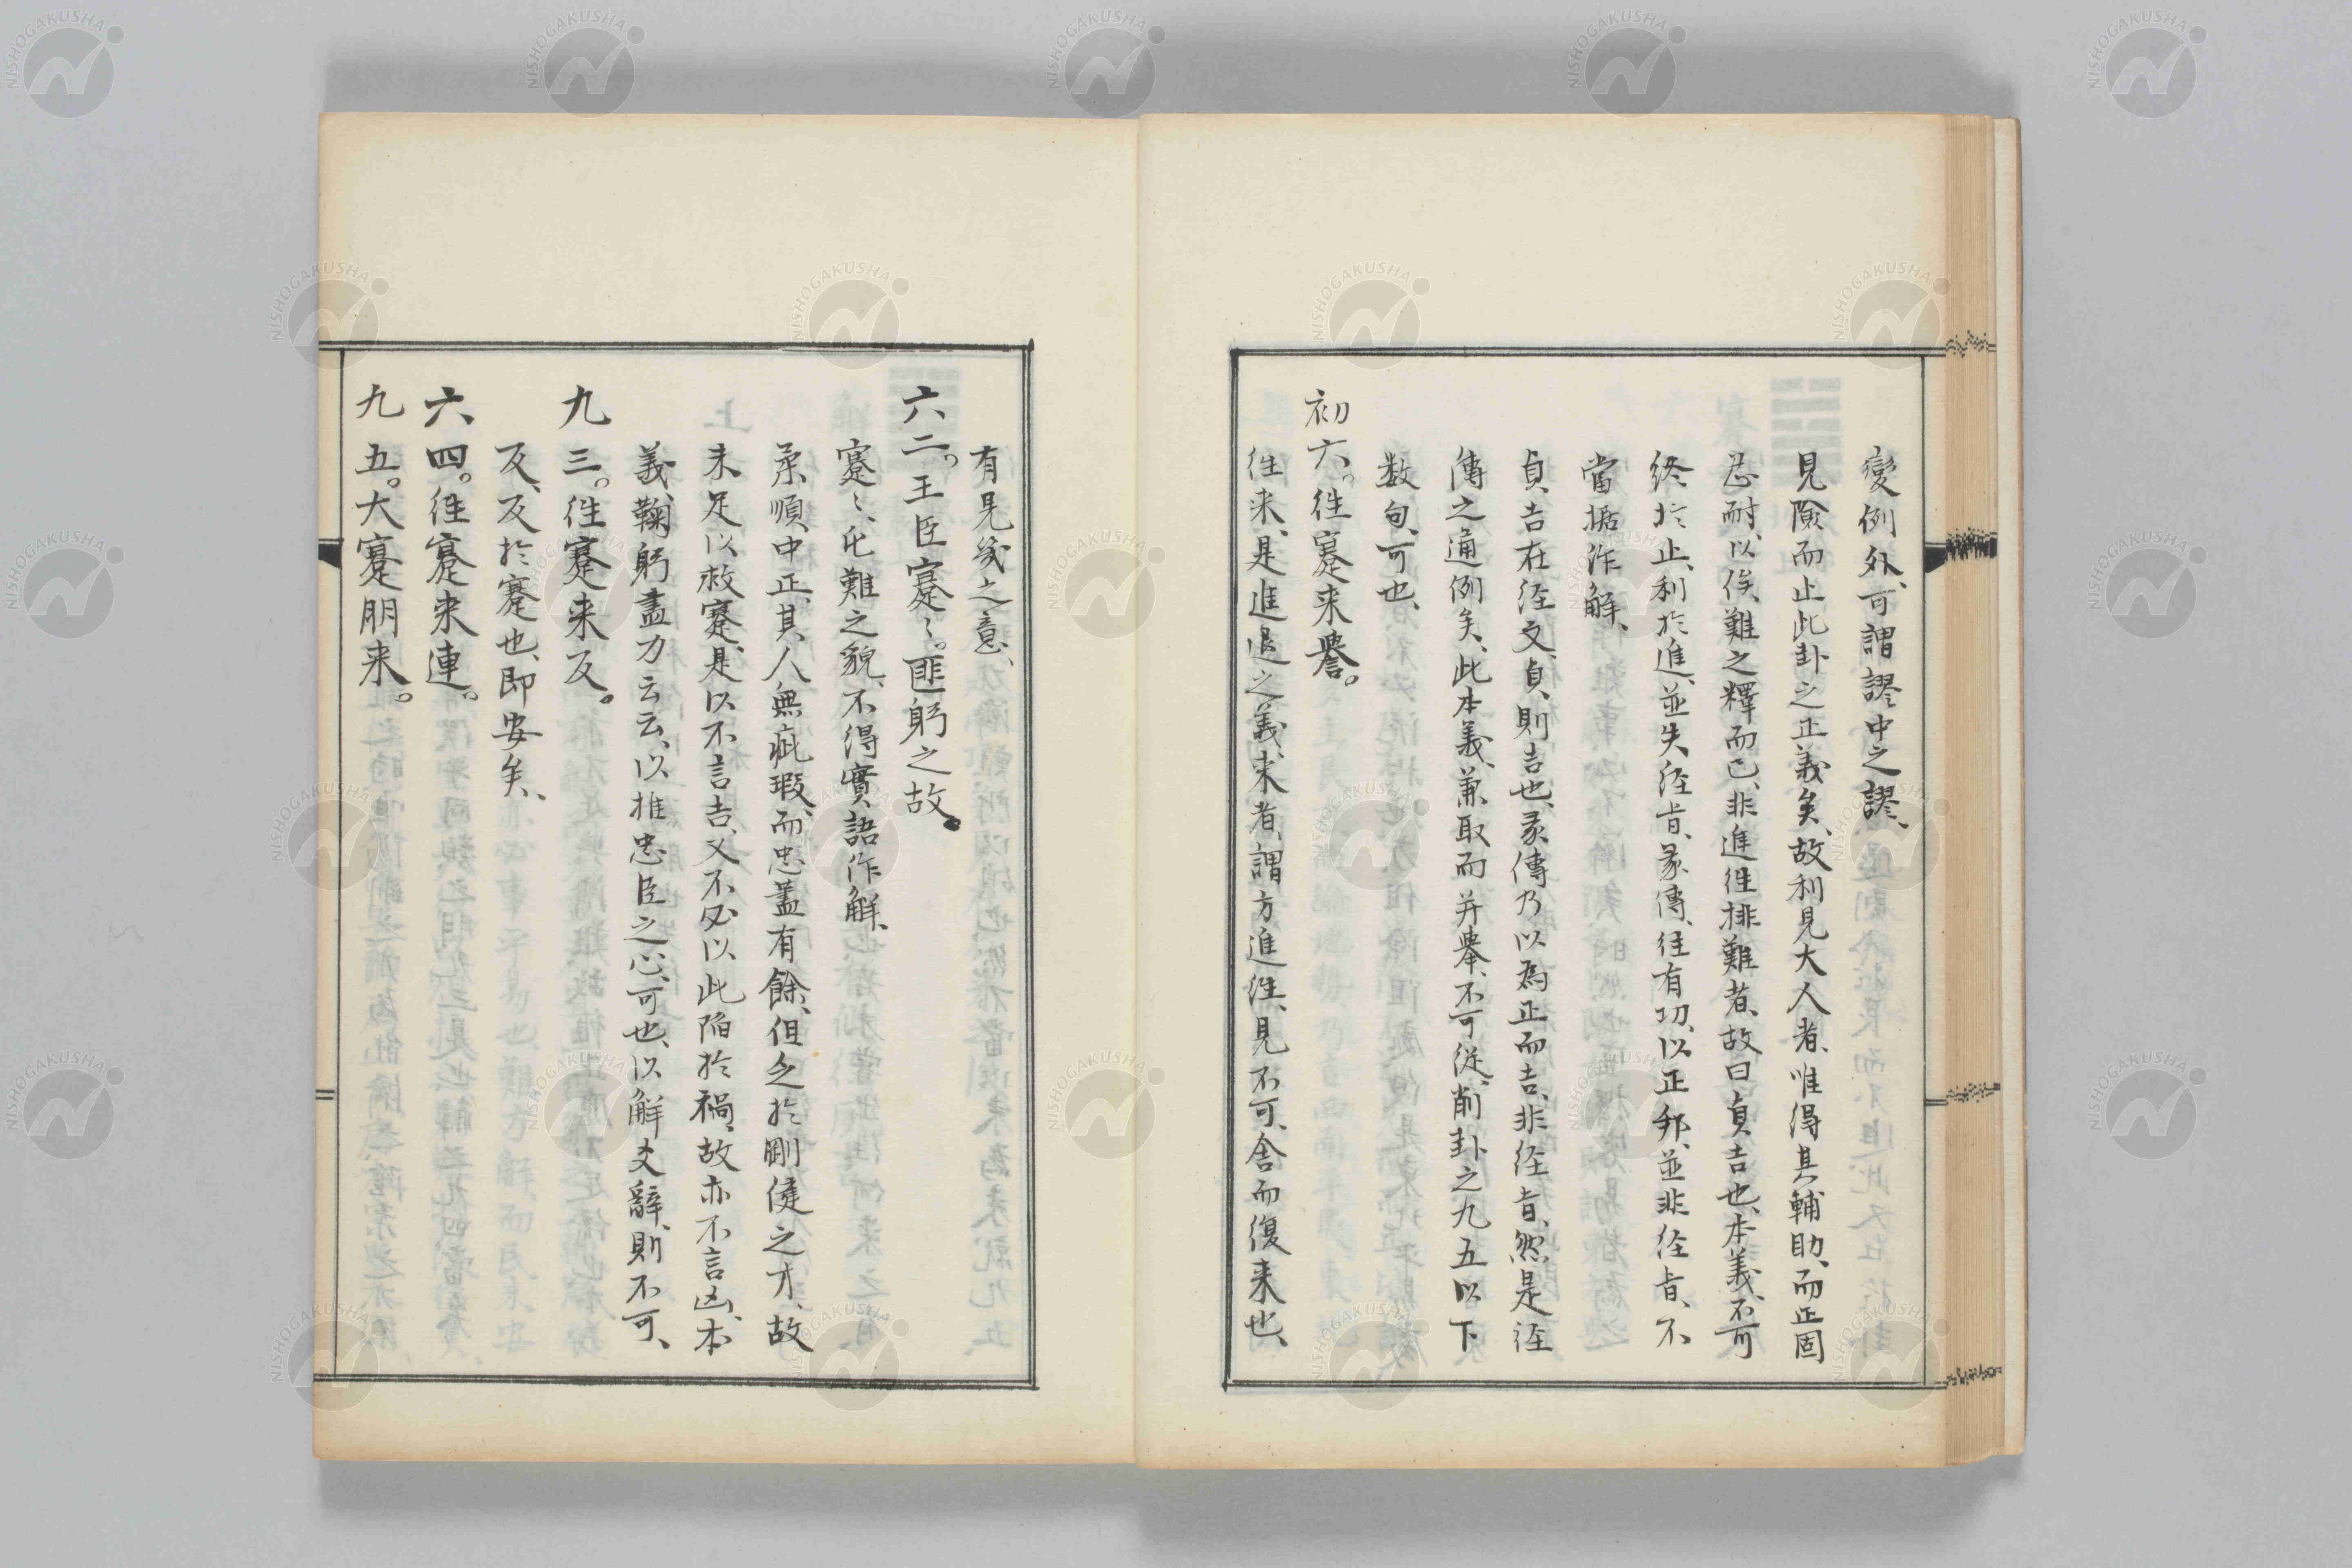 變例外、可謂謬中之謬、
見險而止此卦之正義矣、故利見大人者、唯得其輔助、而正固
忍耐、以俟難之釋而已、非進徃排難者、故曰貞吉也、本義、不可
終於止、利於進、並失経旨、彖傳、往有功、以正邦、並非経旨、不
當據作解、
貞吉在経文、貞則吉也、彖傳乃以為正而吉、非経旨、然是経
傳之通例矣、此本義、兼取而并舉、不可従、削卦之九五以下
数句、可也、
初六。徃蹇来譽。
徃来、是進退之義、来者、謂方進徃、見不可、舍而復来也、
有見幾之意、
六二。王臣蹇〻。匪躬之故。
蹇〻、屯難之貌、不得實語作解、
柔順中正、其人無疵瑕、而忠藎有餘、但乏於剛健之才、故
未足以救蹇、是以不言吉、又不必以此陥於禍、故亦不言凶、本
義、鞠躬盡力云云、以推忠臣之心、可也、以解爻辭、則不可、
九三。徃蹇来反。
反、反於蹇也、即安矣、
六四。徃蹇来連。
九五。大蹇朋来。
NISHOGAKUSHA